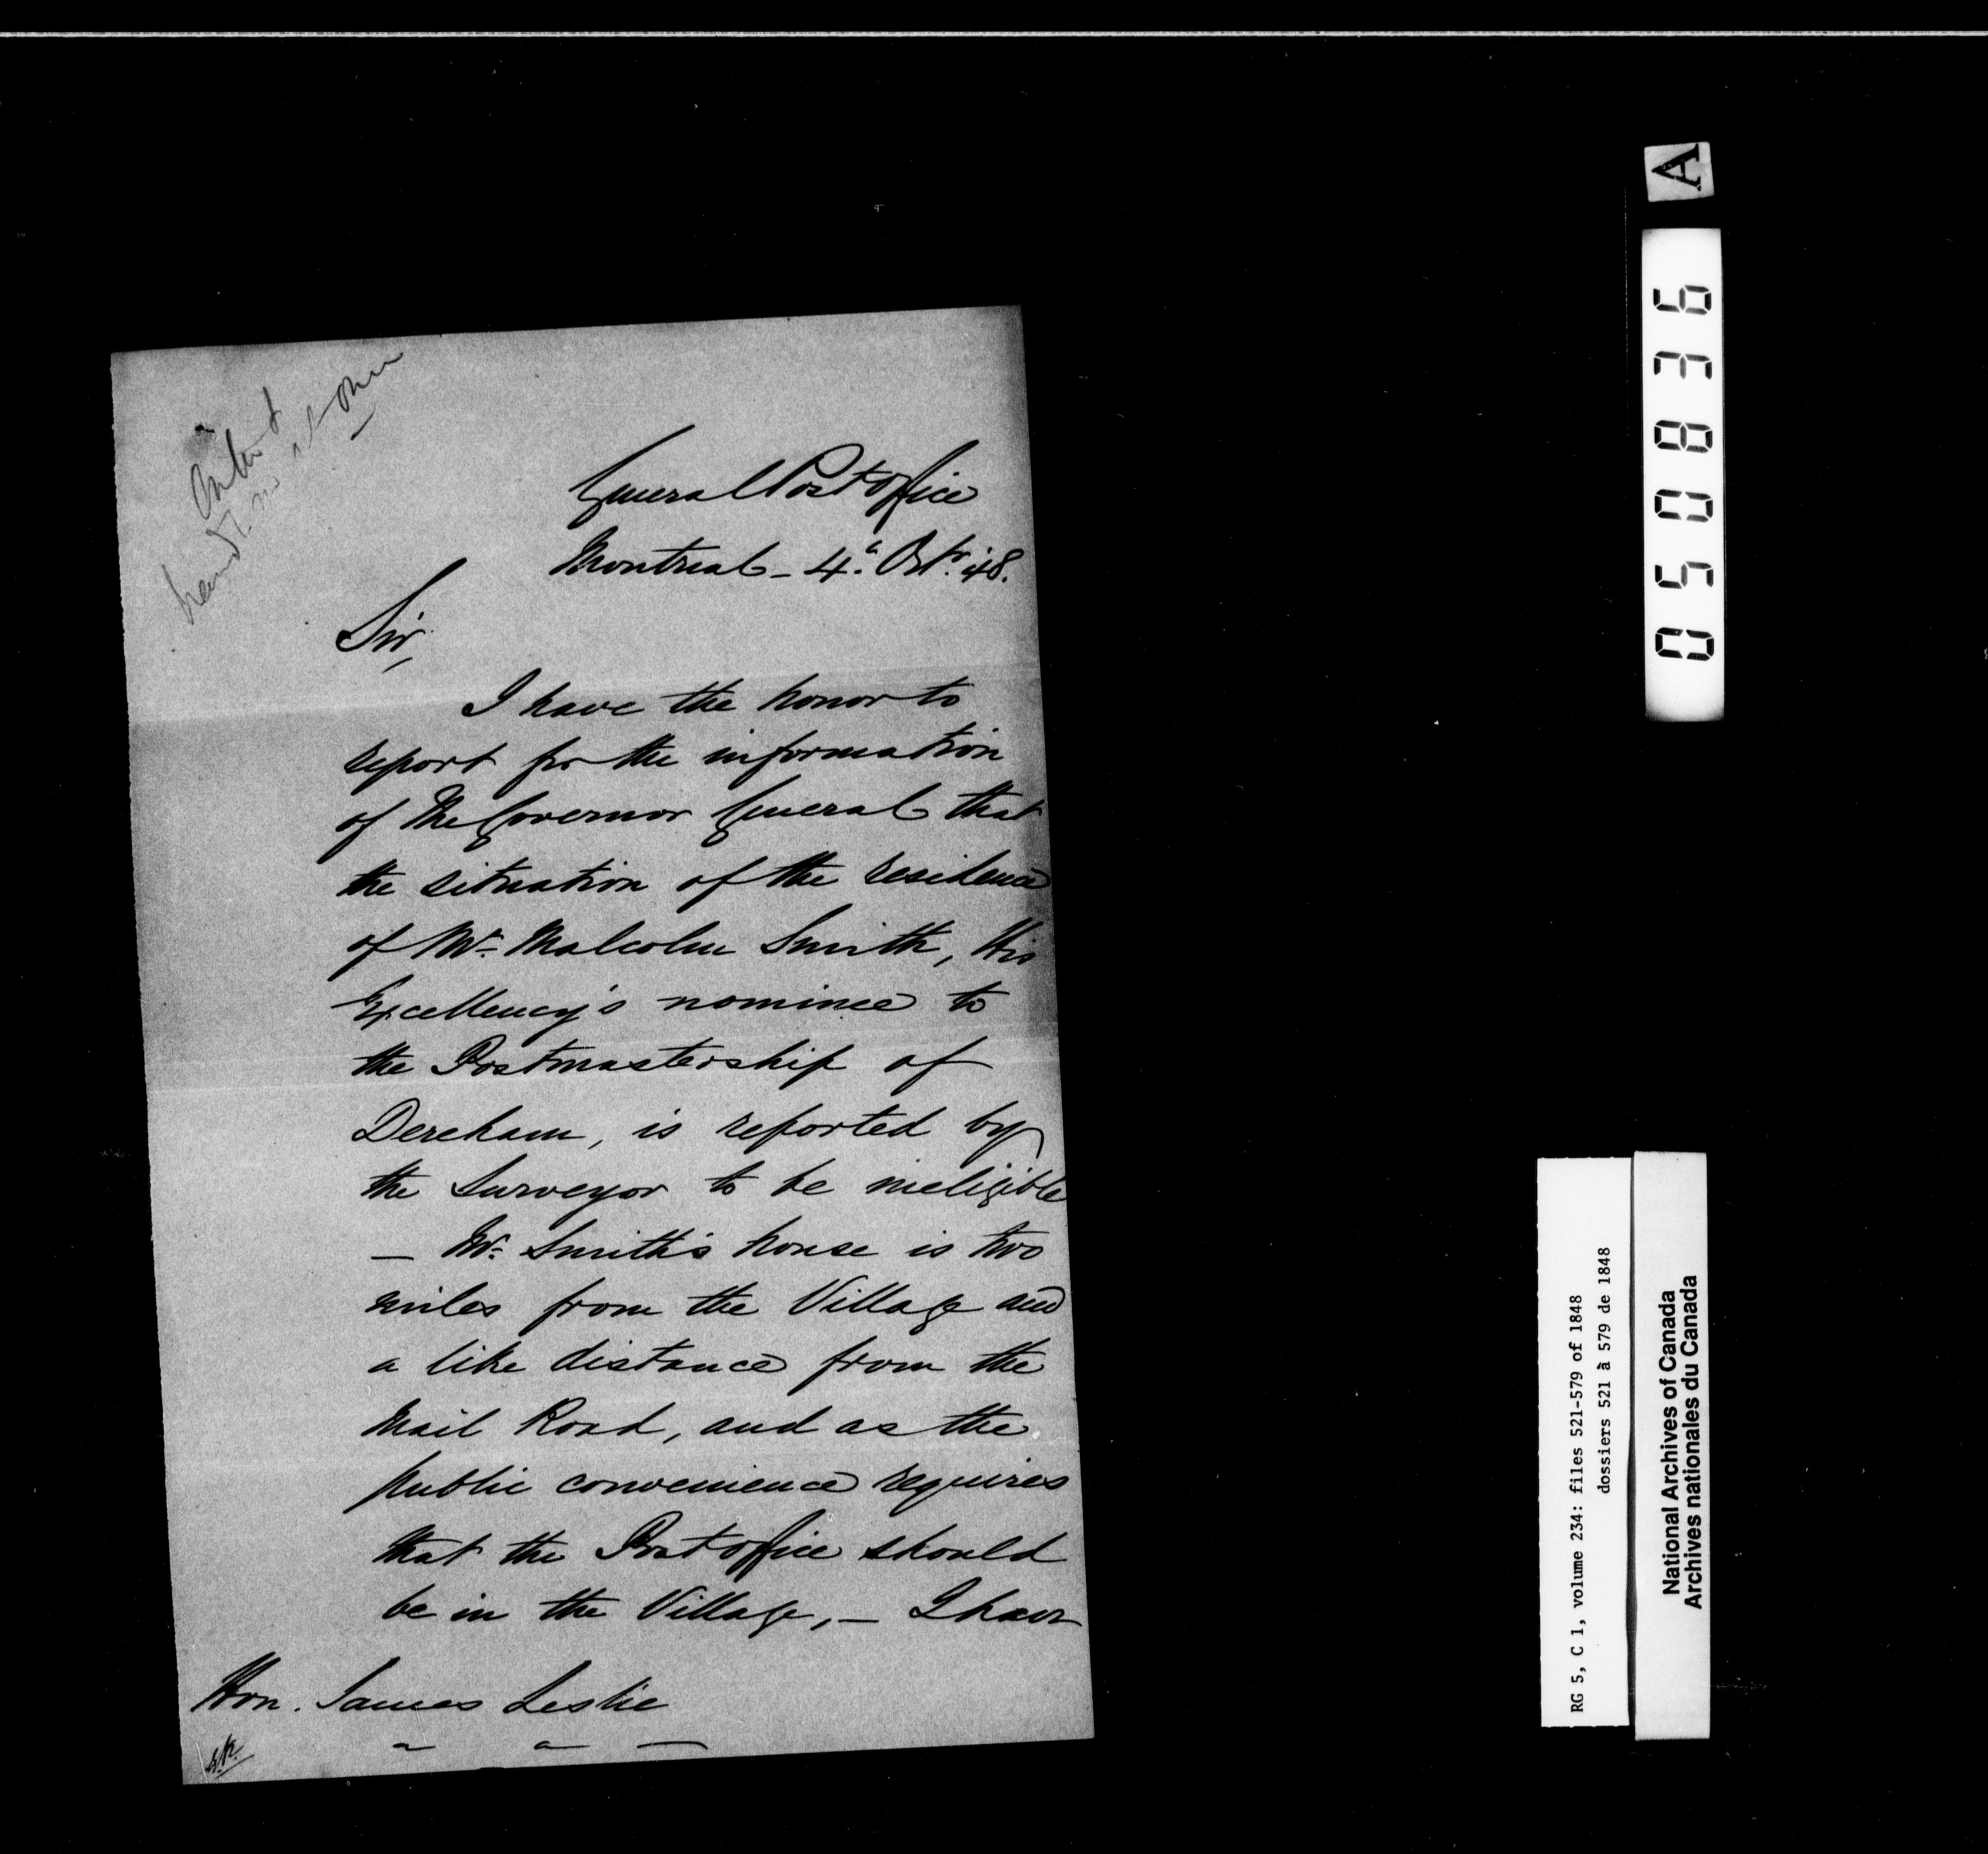 General Post office
Montreal - 4th Octr. '48.
Sir,
I have the honor to
report for the information
of The Governor General that
the situation of the residence
of Mr. Malcolm Smith, His
Excellency's nominee to
the Postmastership of
Dereham, is reported by
the Surveyor to be ineligible
— Mr. Smith's house is two
miles from the Village and
a like distance from the
Mail Road, and as the
public convenience requires
that the Post office should
be in the Village, — I have
Hon. James Leslie
A
050836
RG 5, C 1, volume 234: files 521-579 of 1848
dossiers 521 à 579 de 1848
National Archives of Canada
Archives nationales du Canada